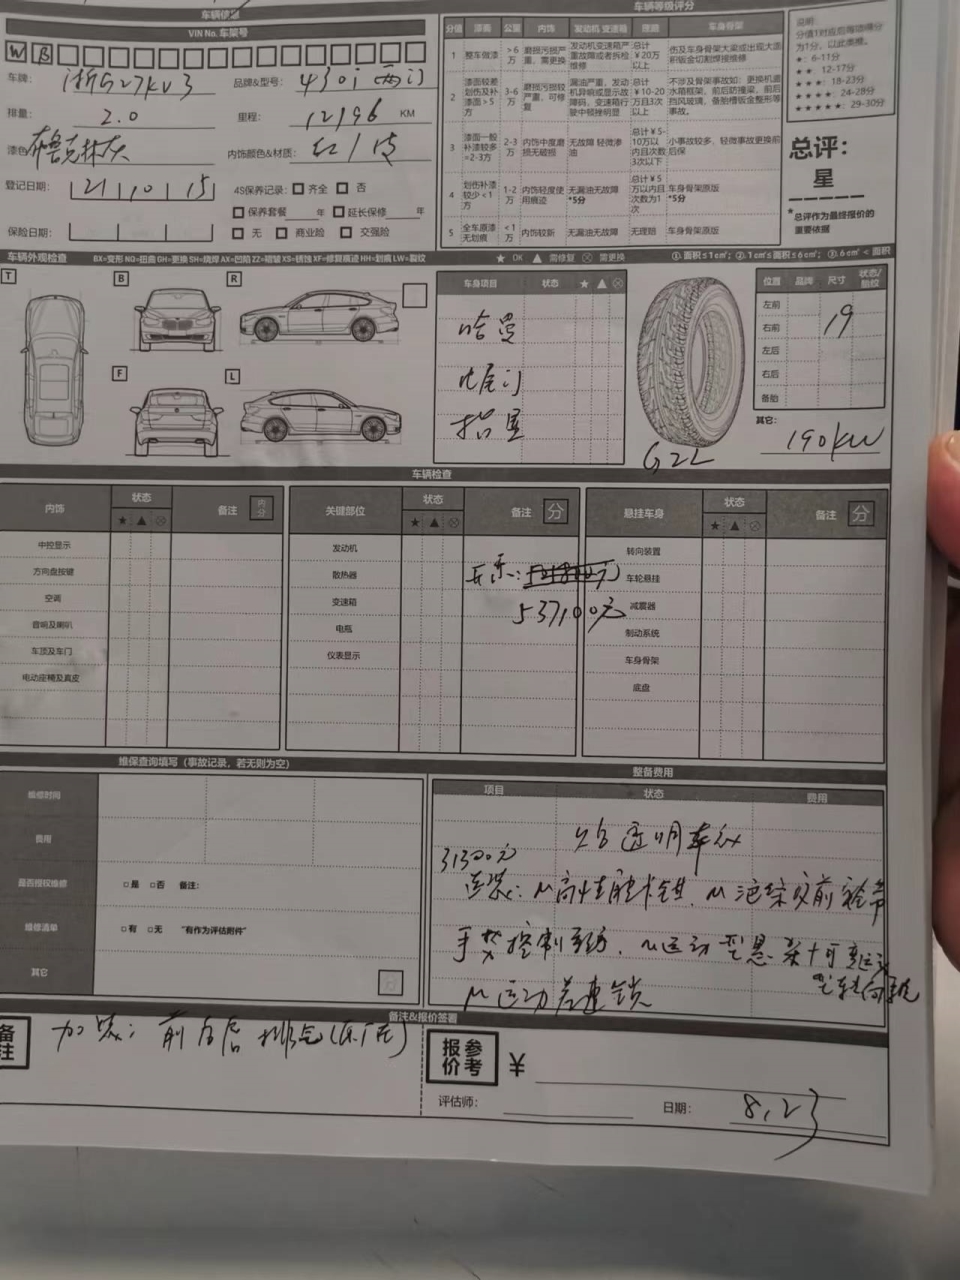 车辆信息
VIN No. 车架号
W B
车牌: 浙G27KV3 品牌&型号: 430i 两门
排量: 2.0 里程: 12196 KM
漆色: 布鲁克林灰 内饰颜色&材质: 红/皮
登记日期: 21 10 15 4S保养记录: 齐全 否
保养套餐 年 延长保修 年
保险日期: 无 商业险 交强险
车辆等级评分
分值 漆面 公里 内饰 发动机 变速箱 理赔 车身骨架
1 整车做漆 >6万 磨损污损严重、需更换 发动机变速箱严重故障或者拆检维修 总计¥20万以上 伤及车身骨架大梁或出现大面积钣金切割焊接维修
2 漆面较差划伤及补漆面>5方 3-6万 磨损污损较严重、可修复 漏油严重、发动机异响或显示故障码、变速箱行驶中顿挫明显 总计¥10-20万且3次以上 不涉及骨架事故如: 更换机盖水箱框架、前后防撞梁、前后挡风玻璃、备胎槽钣金整形等事故。
3 漆面一般补漆较多=2-3方 2-3万 内饰中度磨损无破损 无故障 轻微渗油 总计¥5-10万以内且次数3次以下 小事故较多、轻微事故更换前后保
4 划伤补漆较少<1方 1-2万 内饰轻度使用痕迹 无漏油无故障 *5分 总计¥5万以内且次数为1次 车身骨架原版 *5分
5 全车原漆无划痕 <1万 内饰较新 无漏油无故障 无理赔 车身骨架原版
说明:
★: 6-11分
★★: 12-17分
★★★: 18-23分
★★★★: 24-28分
★★★★★: 29-30分
总评:
星
*总评作为最终报价的重要依据
车辆外观检查 BX=变形 NQ=扭曲 GH=更换 SH=烧焊 AX=凹陷 ZZ=褶皱 XS=锈蚀 XF=修复痕迹 HH=划痕 LW=裂纹 ★ OK ▲ 需修复 ⊗ 需更换 ①. 面积≤1cm²; ②. 1cm²≤面积≤6cm²; ③. 6cm²<面积
T B R
F L
车身项目 状态 ★ ▲ ⊗
哈曼
电尾门
抬显
G22
位置 品牌 尺寸 状态/胎纹
左前
右前 19
左后
右后
备胎
其它: 190kW
车辆检查
内饰 状态 ★ ▲ ⊗ 备注 内分
中控显示
方向盘按键
空调
音响及喇叭
车顶及车门
电动座椅及真皮
关键部位 状态 ★ ▲ ⊗ 备注 分
发动机
散热器
变速箱
电瓶
仪表显示
537100元
悬挂车身 状态 ★ ▲ ⊗ 备注 分
转向装置
车轮悬挂
减震器
制动系统
车身骨架
底盘
维保查询填写(事故记录,若无则为空)
维修时间
费用
是否授权维修 □是 □否 备注:
维修清单 □有 □无 "有作为评估附件"
其它
整备费用
项目 状态 费用
31300元
选装: M高性能卡钳、M
手势控制系统、M运动型悬架+可变运动型转向系统
M运动差速锁
备注&报价签署
备注 加装: 前后唇 排气(原厂)
参考报价 ¥
评估师: 日期: 8.23